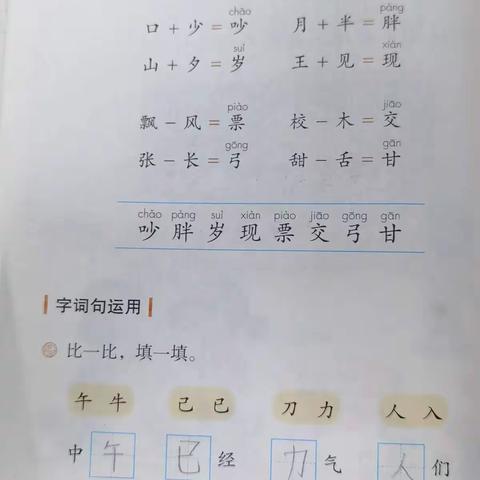 chǎo pàng
口+少=吵 月+半=胖
suì xiàn
山+夕=岁 王+见=现
piào jiāo
飘-风=票 校-木=交
gōng gān
张-长=弓 甜-舌=甘
chǎo pàng suì xiàn piào jiāo gōng gān
吵 胖 岁 现 票 交 弓 甘
字词句运用
比一比，填一填。
午 牛 己 已 刀 力 人 入
中午 已经 力气 人们